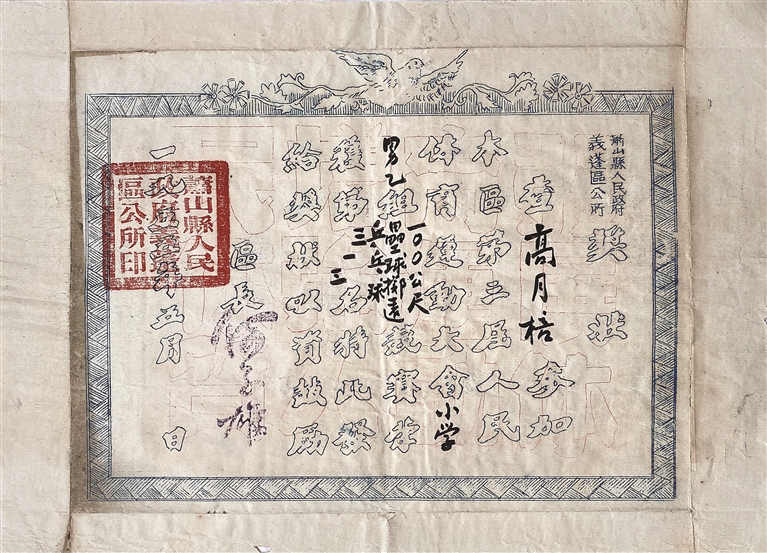 蕭山縣人民政府
義蓬區公所
奖状
查高月參加
本區第届人民
体育運動大會小学
男乙组
一〇〇公尺
壘球掷远
乒乓球
競賽荣
获第三一三名特此發
给奖状以资鼓励
區长
雄
一九五年五月 日
蕭山縣人民
政府義蓬
區公所印